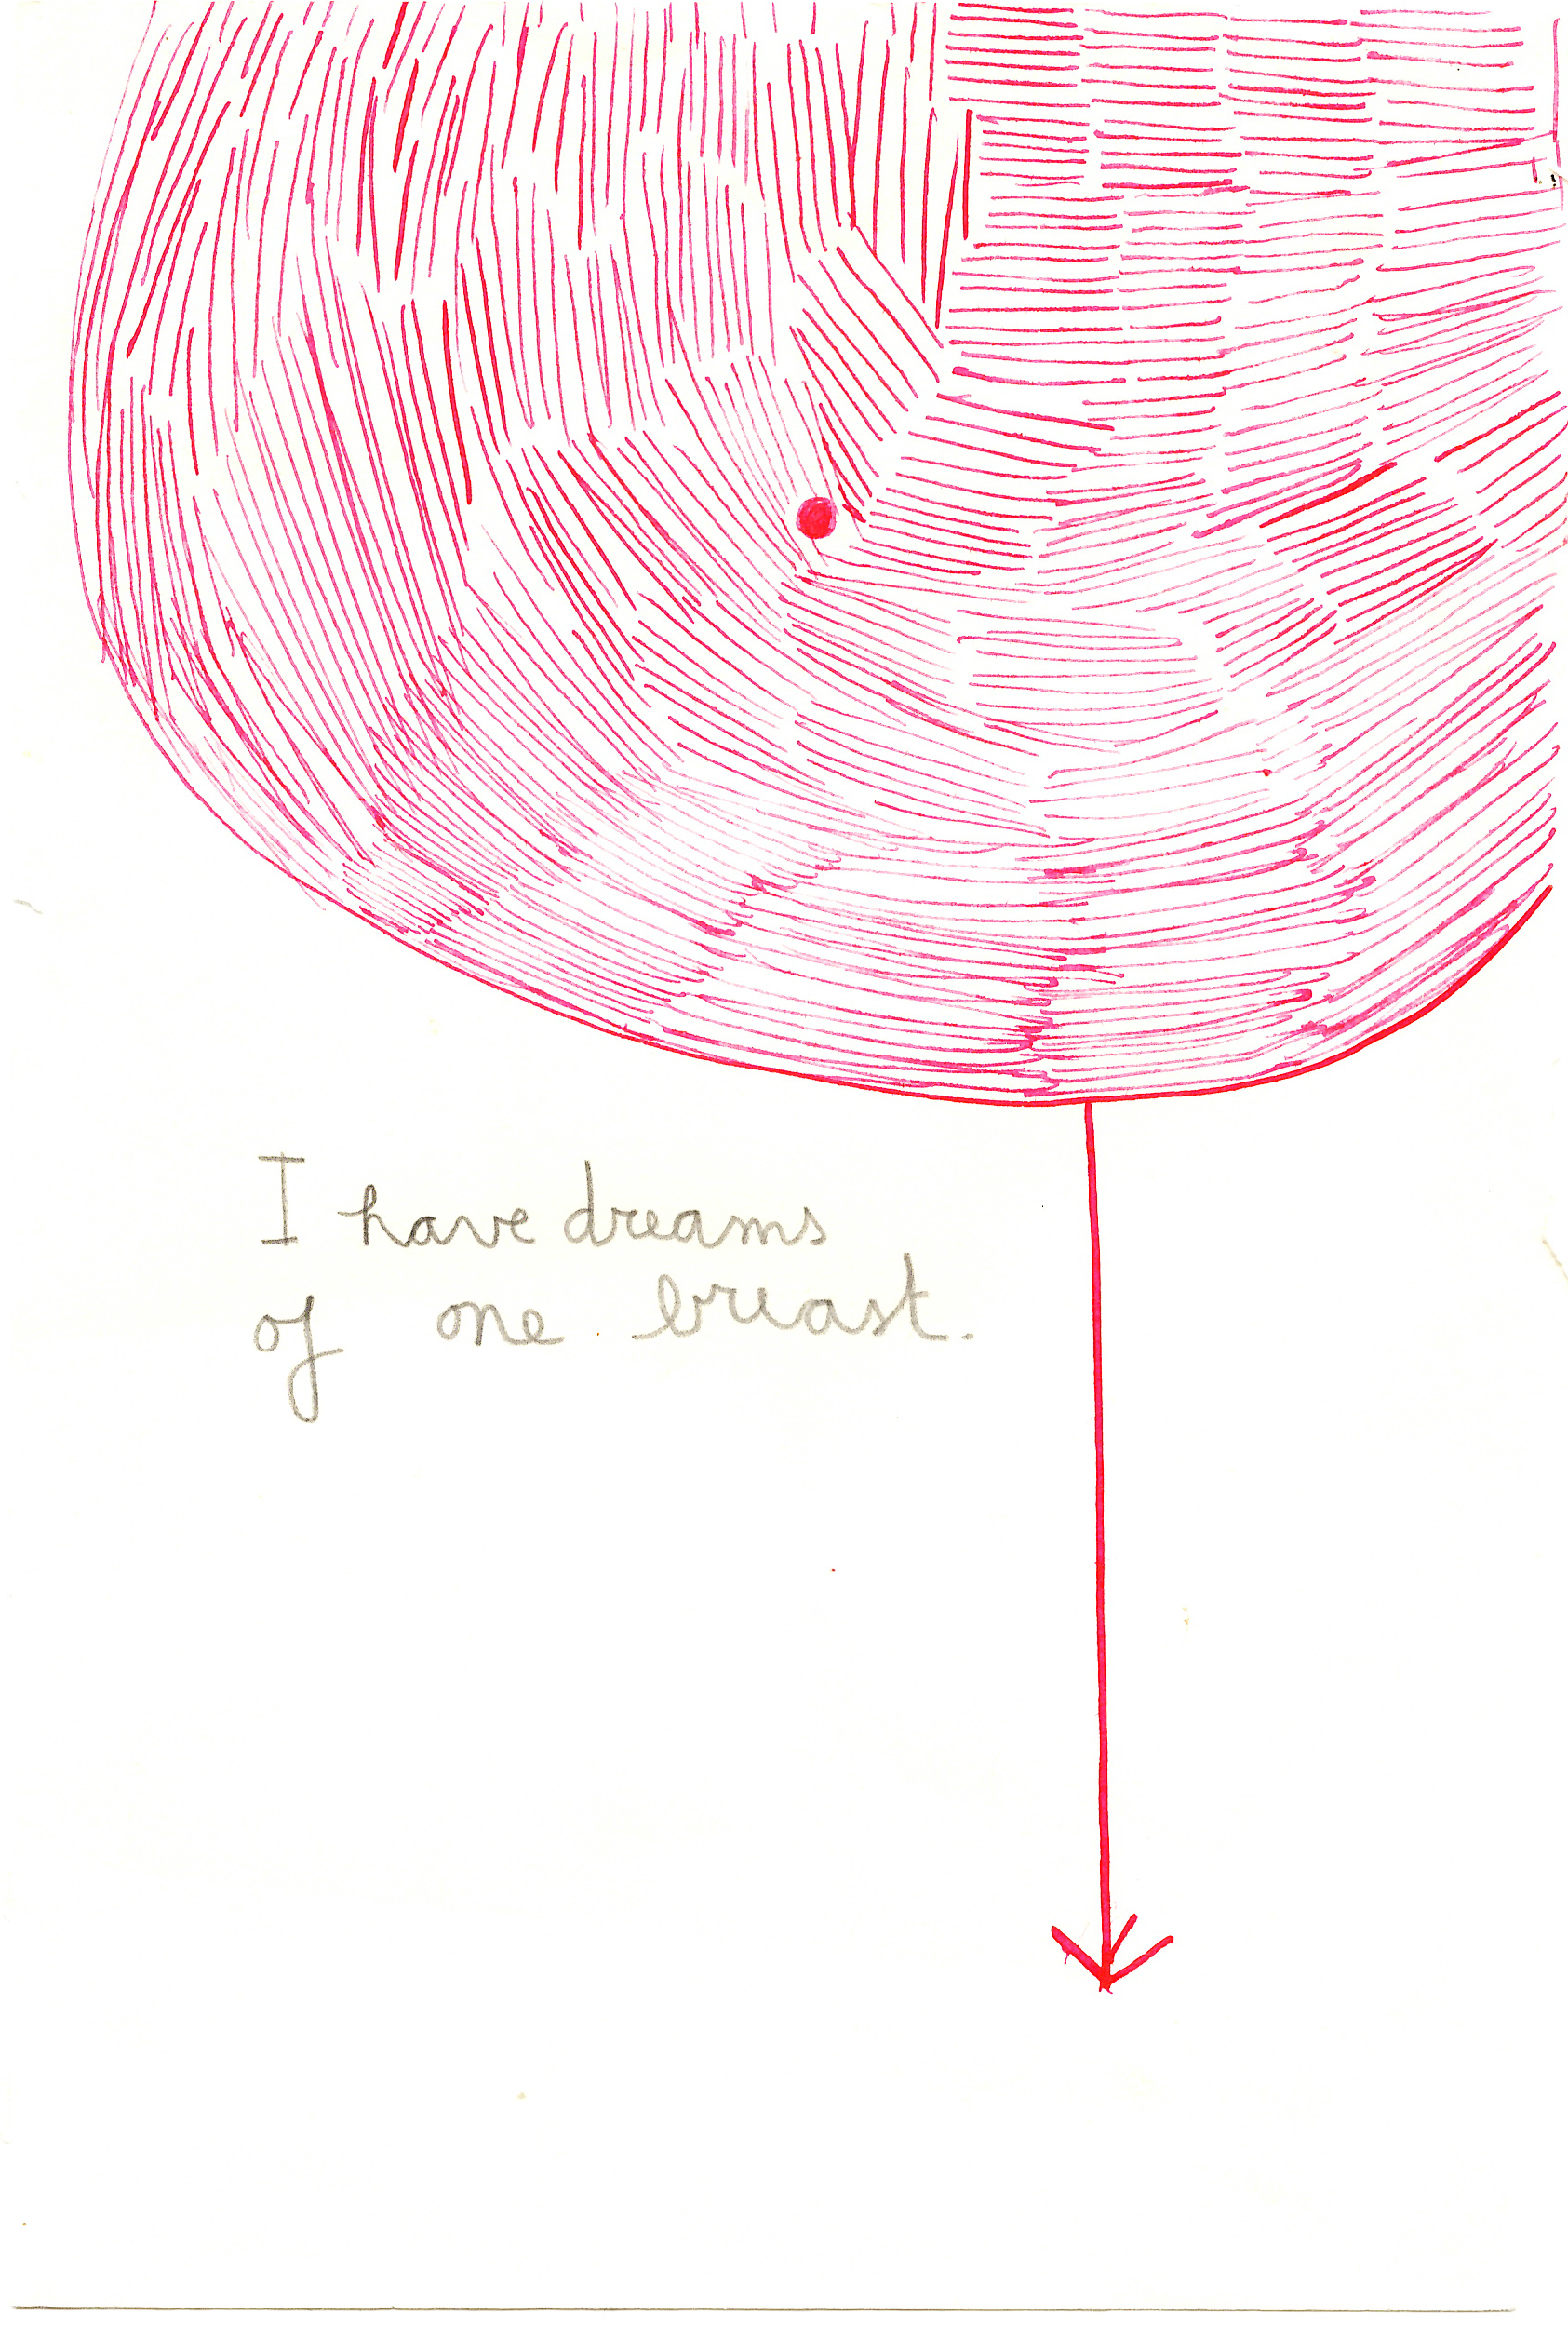 I have dreams
of one breast.